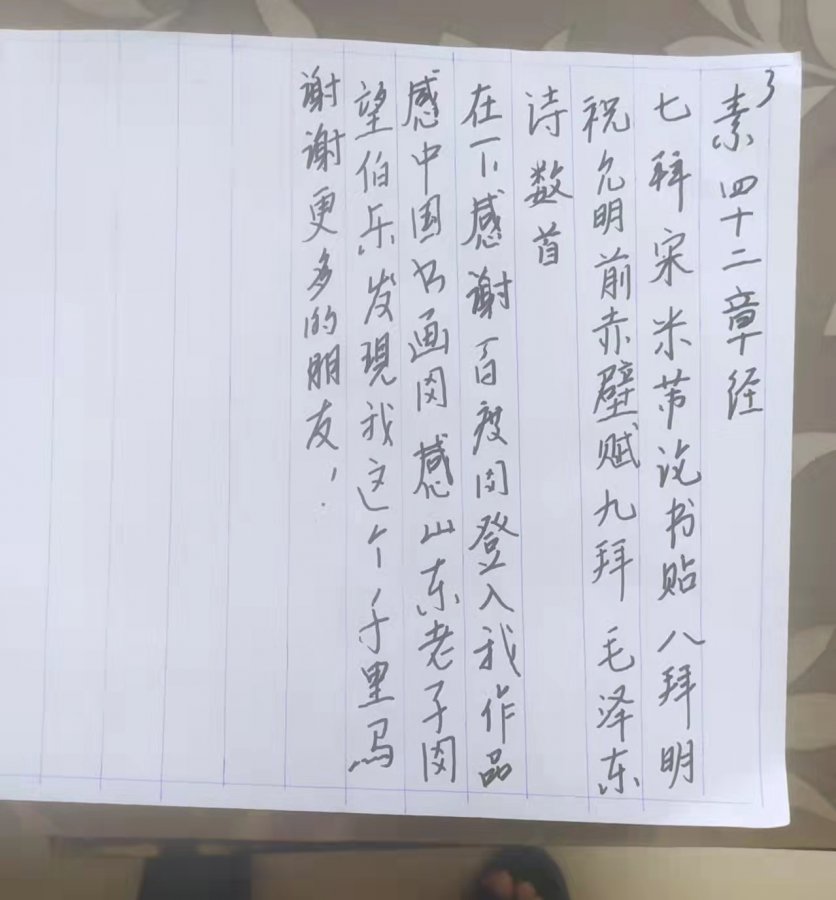 3
素四十二章经
七拜宋米芾论书贴八拜明
祝允明前赤壁赋九拜毛泽东
诗数首
在下感谢百度网登入我作品
感中国书画网感山东老子网
望伯乐发現我这个千里马
谢谢更多的朋友!